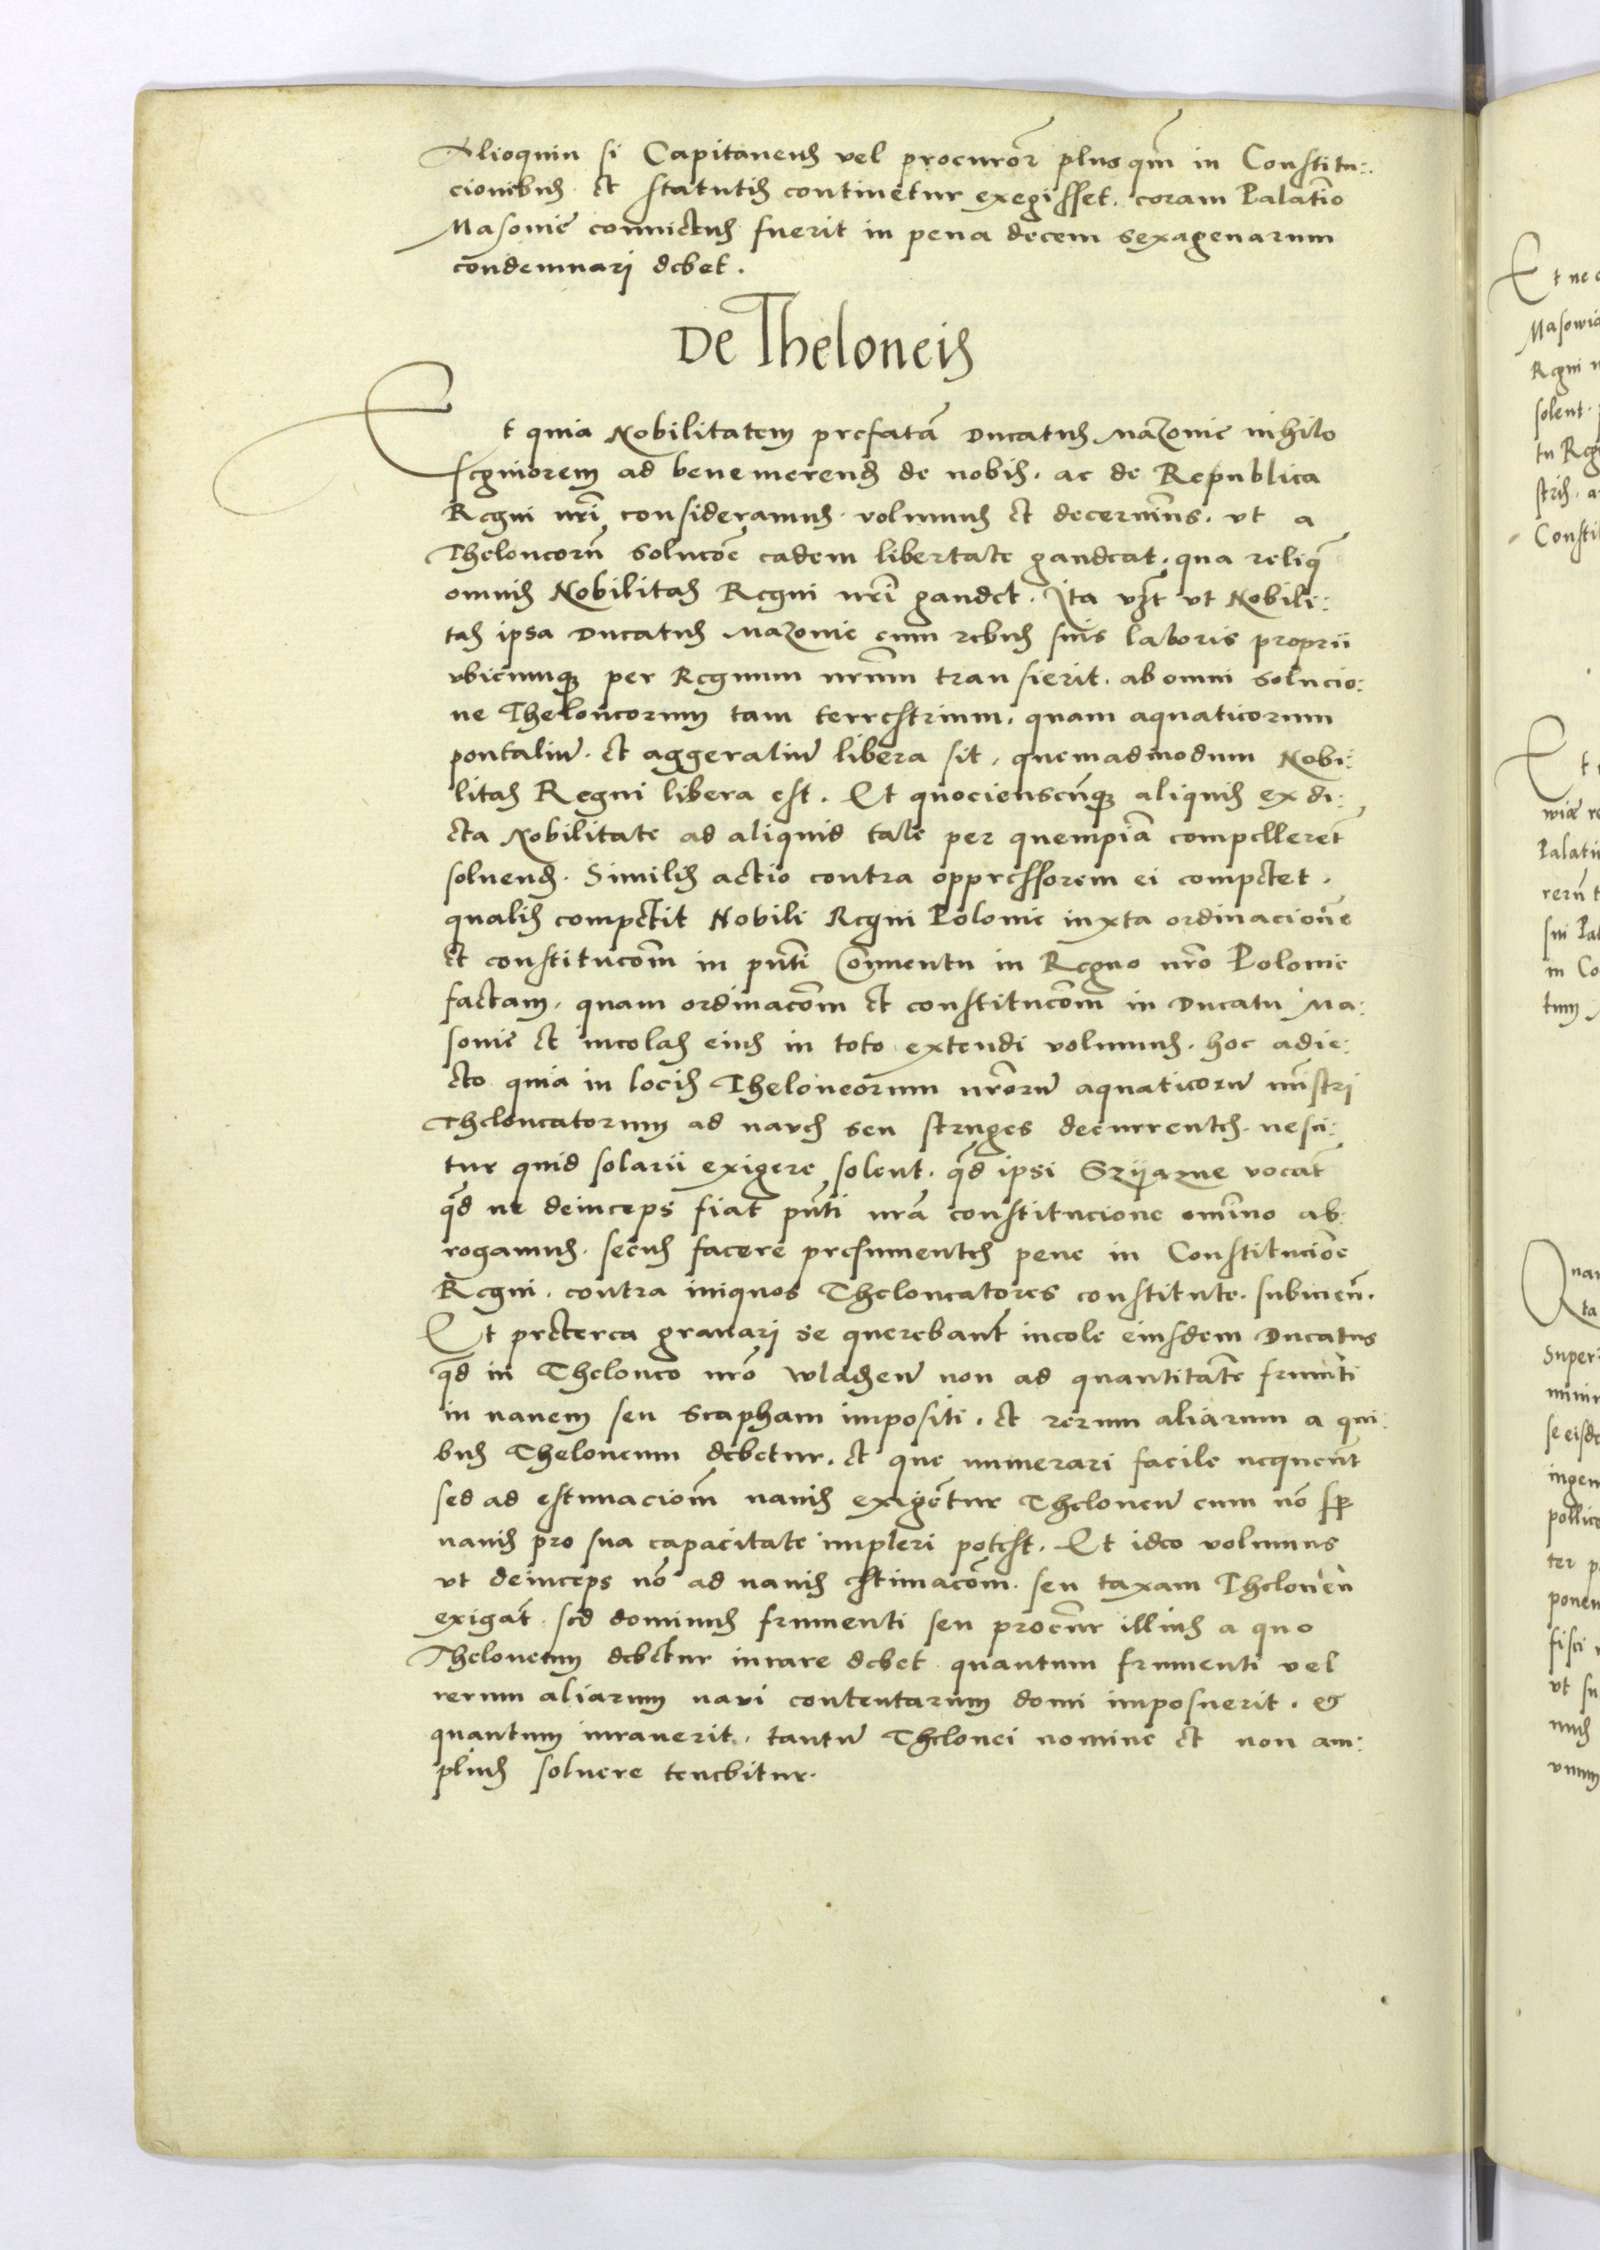 Alioquin si Capitaneus vel procurōr plus qm̄ in Constitu:
cionibus et statutis continetur exegisset. coram Palatīo
Masovie convictus fuerit in pena decem sexagenarum
condemnari debet.
De Theloneis
Et quia Nobilitatem prefatā Ducatus Mazovie nihilo
segniorem ad benemerend de nobis. ac de Republica
Regni nr̄i consideramus. volumus et decernim̄s. ut a
Theloneorū solucōe eadem libertate gaudeat. qua reliq̄
omnis Nobilitas Regni nr̄i gaudet. Ita vzt ut Nobili:
tas ipsa Ducatus Mazovie cum rebus suis laboris proprii
ubicumq; per Regnum nrūm transierit. ab omni solucio:
ne Theloneorum tam terrestrium. quam aquaticorum
pontaliū. et aggeraliū libera sit, quemadmodum Nobi:
litas Regni libera est. Et quocienscūq; aliquis ex di:
cta Nobilitate ad aliquid tale per quempiā compelleret̄
solvend. Similis actio contra oppressorem ei competet.
qualis competit Nobili Regni Polonie iuxta ordinacionē
et constitucōm in pn̄ti Conventu in Regno nr̄o Polonie
factam. quam ordinacōm et constitucōm in Ducatu Ma:
sovie et incolas eius in toto extendi volumus. hoc adie:
cto quia in locis Theloneorum nr̄orū aquaticorū mīstri
Theloneatorum ad naves seu struges decurrentes. nesci:
tur quid solarii exigere solent. qd̄ ipsi Szyazne vocat̄
qd̄ ne deinceps fiat pn̄ti nr̄a constitucione omīno ab:
rogamus. secus facere presumentes pene in Constitucione
Regni. contra iniquos Theloneatores constitute. subiciēn.
Et preterea gravari se querebant̄ incole eiusdem Ducatus
qd̄ in Theloneo nr̄o Wladzeū non ad quantitatē frumti
in navem seu scapham impositi. et rerum aliarum a qui:
bus Theloneum debetur. et que numerari facile nequeūt
sed ad estimaciom̄ navis exigētur Theloneū cum nō sp
navis pro sua capacitate impleri potest. Et ideo volumus
ut deinceps nō ad navis estimacōm. seu taxam Theloneū
exigat̄. sed dominus frumenti seu procūr illius a quo
Theloneum debetur iurare debet quantum frumenti vel
rerum aliarum navi contentarum domi imposuerit. &
quantum iuraverit. tantū Thelonei nomine et non am:
plius solvere tenebitur.